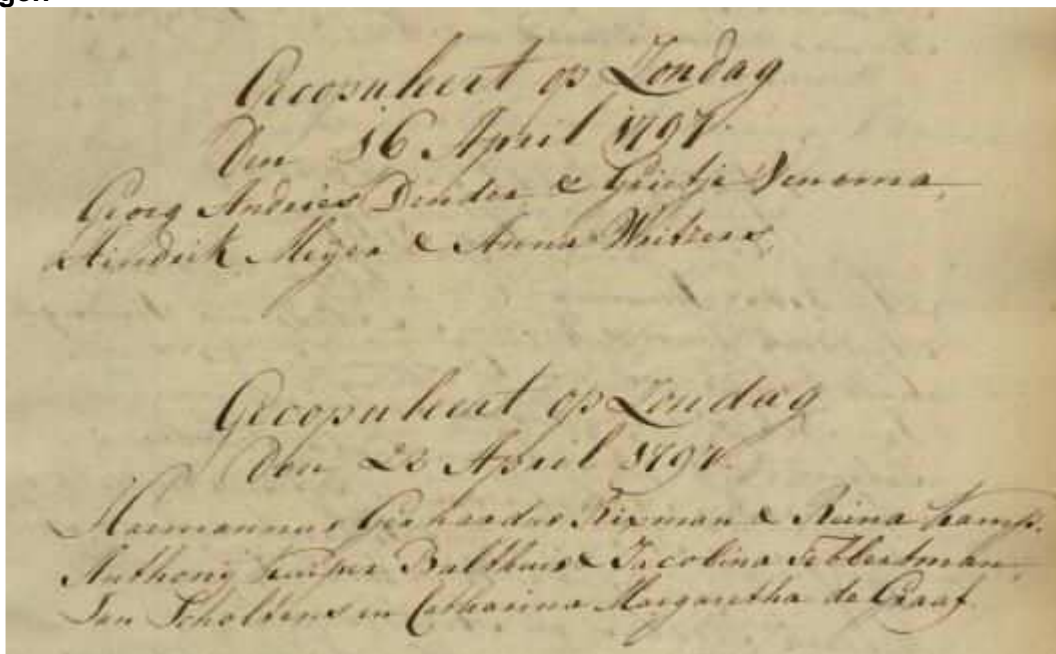 gen
Gecopuleert op Zondag
Den 16 April 1797.
Georg Andries Dender & Grietje Venema,
Hindrik Meyer & Anna Writzers,
Gecopuleert op Zondag
Den 23 April 1797.
Harmannus Gerhardus Tixman & Reina Kamp.
Anthony Kuiper Balthuis & Jacobina Tebbertman,
Jan Scholtens en Catharina Margaretha de Graaf.